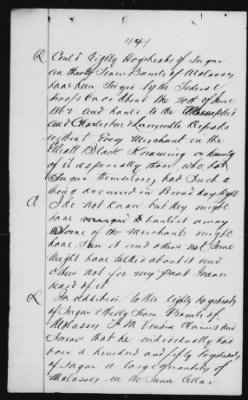 441
Q Could Eighty Hogsheads of Sugar
and thirty seven Barrels of Molasses
have been Seized by the Federal
troops On or about the 20th of June
1862 and hauled to the Memphis
and Charleston & Louisville Depots
without Every Merchant in the
Elliott Block Knowing or hearing
of it especially those who had
Sugar themselves had Such a
thing occurred in Broad day light
A I do not Know but they might
have to hauled it away
Some of the Merchants might
have Seen it and others not Some
might have talked about it and
others not for my part I never
heard of it
Q In addition to the Eighty hogsheads
of Sugar & thirty Seven Barrels of
Molasses F. M. Cousin Claims and
Swears that he individually had
over a hundred and fifty hogsheads
of Sugar a large quantity of
Molasses in the Same Cellar